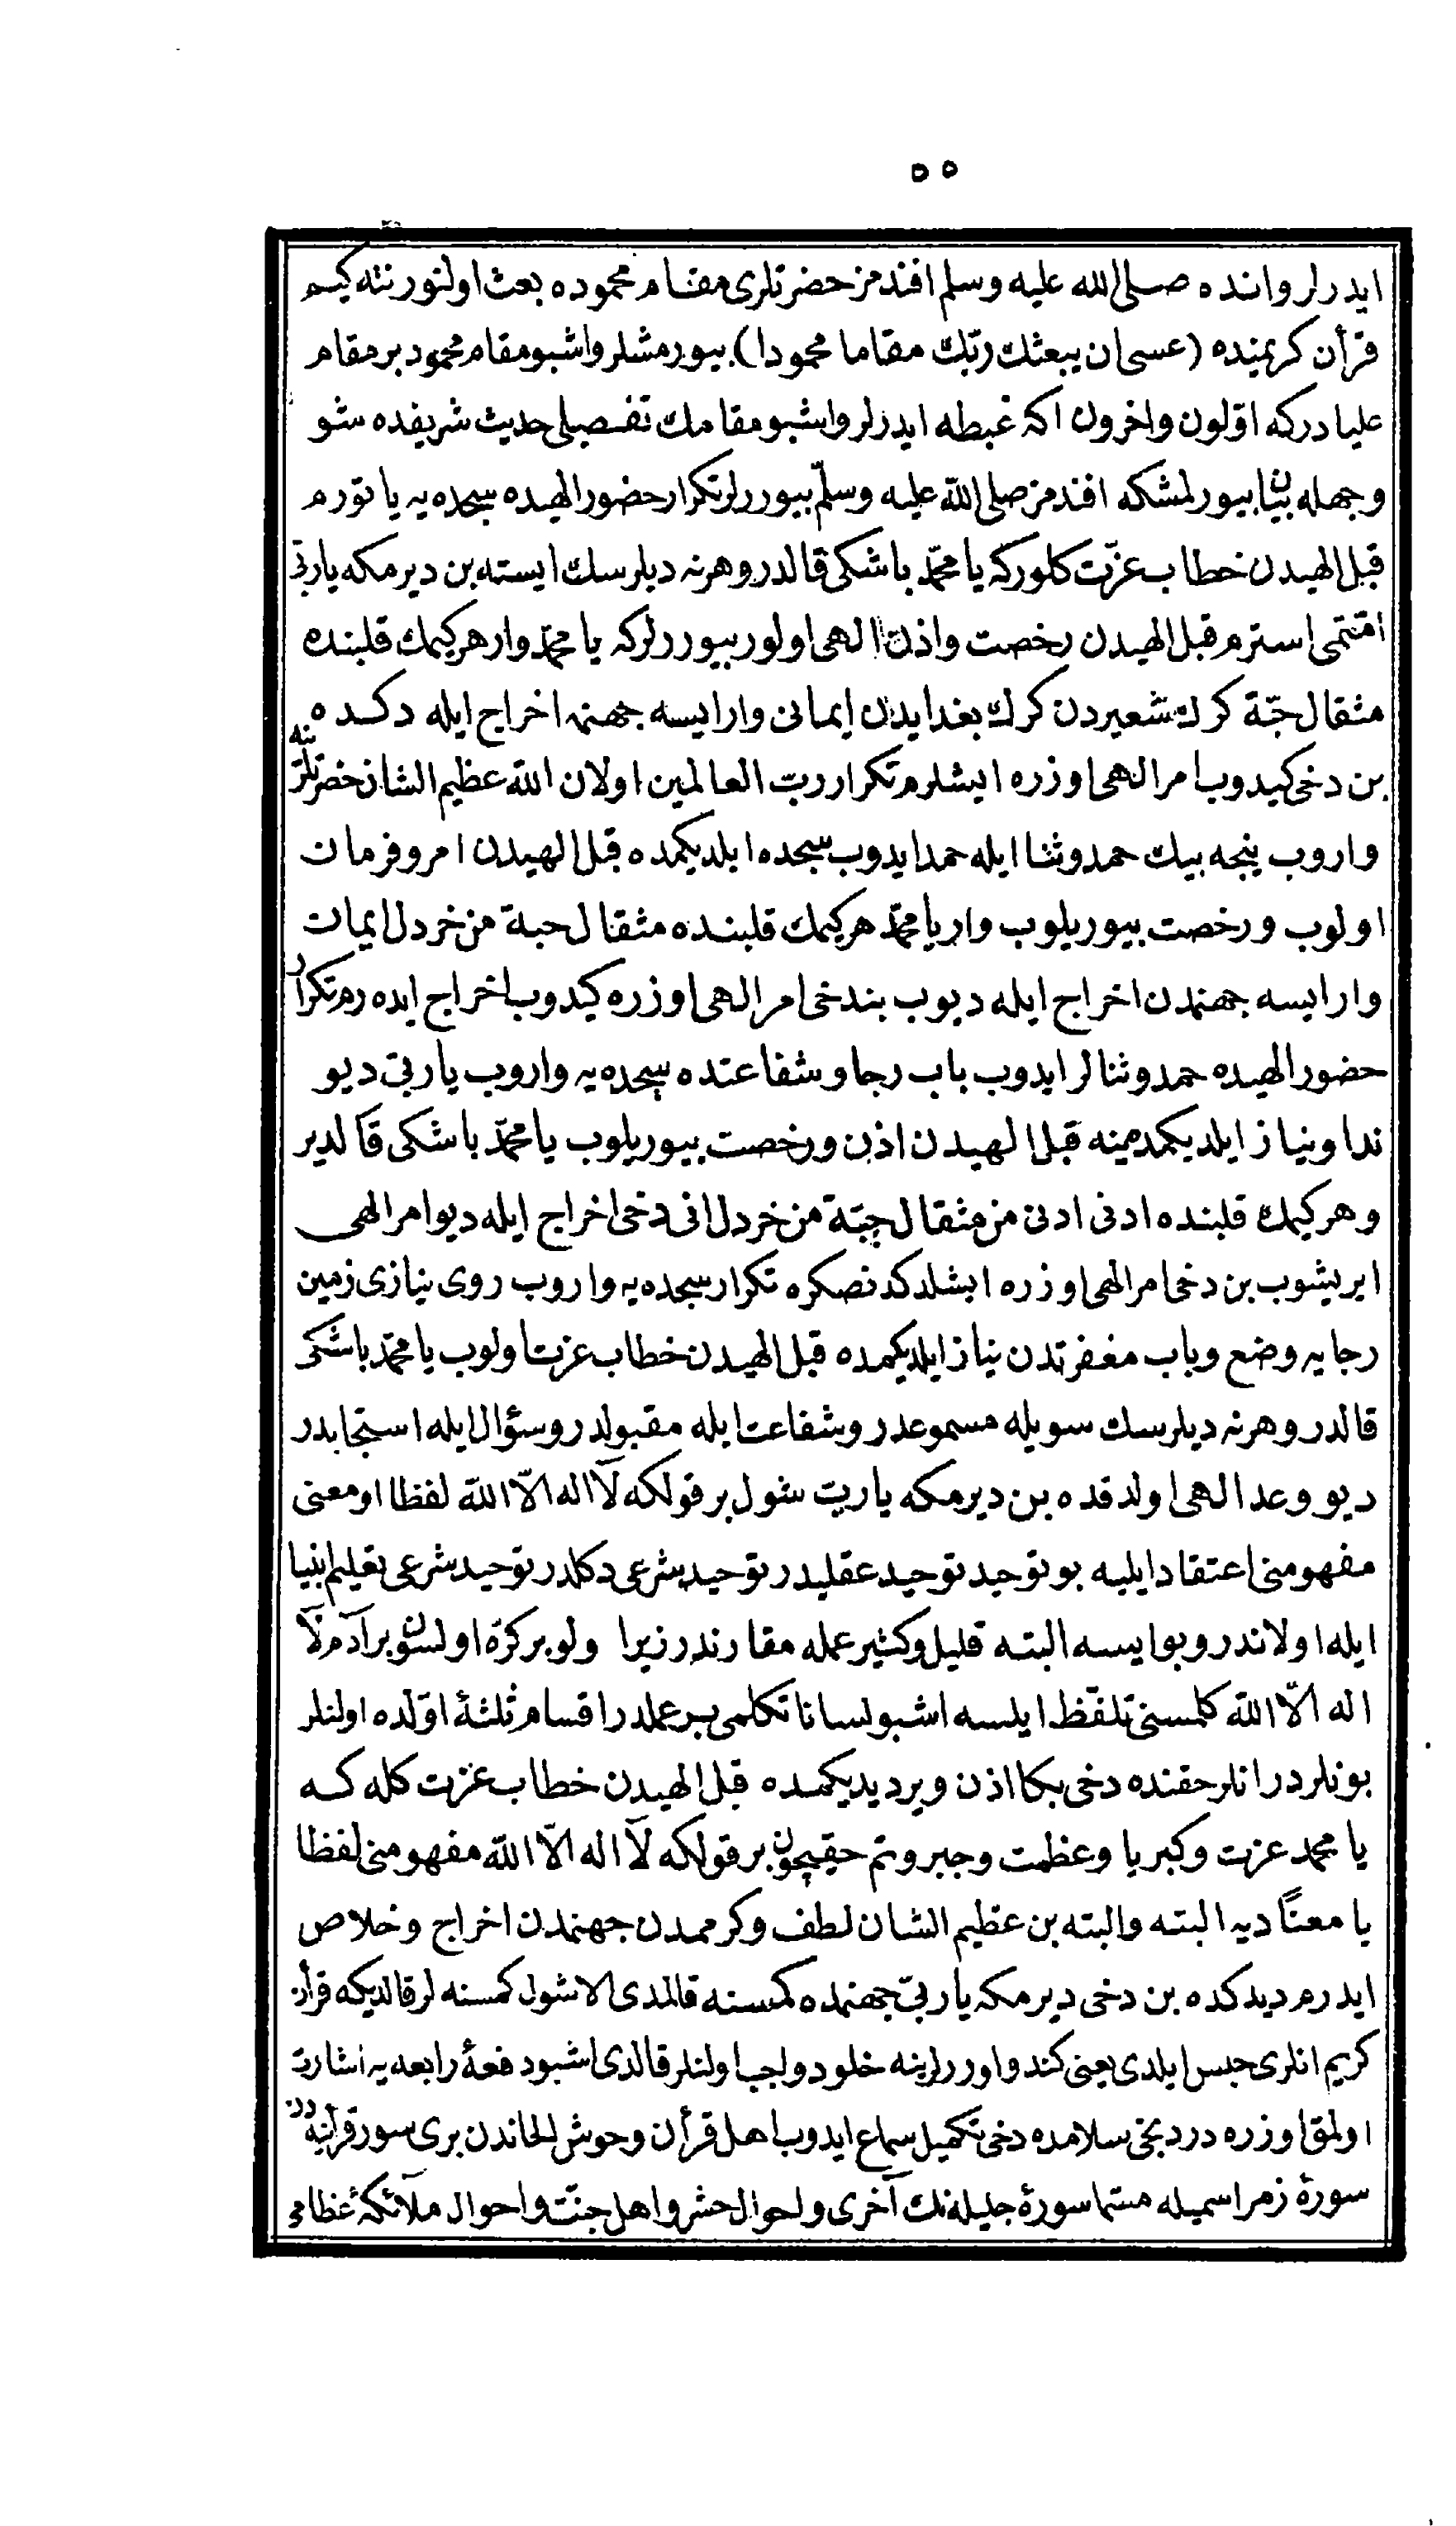 ٥٥
ايدرلر وانده صلى الله عليه وسلم افندمز حضرتلرى مقام محموده بعث اولنور نته كيم
قرأن كريمنده (عسى ان يبعثك ربّك مقاما محمودا) بيورمشلر واشبو مقام محمود بر مقام
عليادركه اوّلون واخرون اكه غبطه ايدرلر واشبو مقامك تفصيلى حديث شريفده شو
وجهله بيان بيورلمشكه افندمز صلى الله عليه وسلّم بيوررلر تكرار حضور الهيده سجده يه ياتورم
قبل الهيدن خطاب عزّت كلوركه يا محمّد باشكى قالدر وهر نه ديلرسك ايسته بن ديرمكه ياربّى
امّتمى استرم قبل الهيدن رخصت واذن الهى اولور بيوررلركه يا محمّد وار هر كيمك قلبنده
مثقال حبّة كرك شعيردن كرك بغدايدن ايمانى وار ايسه جهنمدن اخراج ايله دكده
بن دخى كيدوب امر الهى اوزره ايشلرم تكرار ربّ العالمين اولان الله عظيم الشان حضرتلرينه
واروب نيجه بيك حمد وثنا ايله حمد ايدوب سجده ايلديكمده قبل الهيدن امر وفرمان
اولوب ورخصت بيوريلوب وار يا محمّد هر كيمك قلبنده مثقال حبة من خردل ايمان
وار ايسه جهنمدن اخراج ايله ديوب بندخى امر الهى اوزره كيدوب اخراج ايده رم تكرار
حضور الهيده حمد وثنالر ايدوب باب رجا وشفاعتده سجده يه واروب ياربّى ديو
ندا ونياز ايلديكمده ينه قبل الهيدن اذن ورخصت بيوريلوب يا محمّد باشكى قالدير
وهر كيمك قلبنده ادنى ادنى من مثقال حبّة من خردل انى دخى اخراج ايله ديو امر الهى
ايريشوب بن دخى امر الهى اوزره ايشلدكدنصكره تكرار سجده يه واروب روى نيازى زمين
رجايه وضع وباب مغفرتدن نياز ايلديكمده قبل الهيدن خطاب عزت اولوب يا محمّد باشكى
قالدر وهر نه ديلرسك سويله مسموعدر وشفاعت ايله مقبولدر وسؤال ايله استجابدر
ديو وعد الهى اولدقده بن ديرمكه ياربّ شول بر قولكه لآ اله الاّ الله لفظا او معنى
مفهومنى اعتقاد ايليه بو توحيد توحيد عقليدر توحيد شرعى دكلدر توحيد شرعى تعليم انبيا
ايله اولاندر وبو ايسه البته قليل وكثير عمله مقارندر زيرا ولو بر كرّة اولسون بر آدم لآ
اله الاّ الله كلمسنى تلفّظ ايلسه اشبو لسانا تكلمى بر عملدر اقسام ثلثهٔ اوّلده اولنلر
بونلردر انلر حقنده دخى بكا اذن وير ديديكمده قبل الهيدن خطاب عزت كله كه
يا محمد عزت وكبريا وعظمت وجبروتم حقيچون بر قولكه لآ اله الاّ الله مفهومنى لفظا
يا معنًا ديه البته والبته بن عظيم الشان لطف وكرممدن جهنمدن اخراج وخلاص
ايدرم ديدكده بن دخى ديرمكه ياربّى جهنمده كمسنه قالمدى الا شول كمسنه لر قالديكه قرأن
كريم انلرى حبس ايلدى يعنى كندو اوزرلرينه خلود واجب اولنلر قالدى اشبو دفعهٔ رابعه يه اشارت
اولمق اوزره دردنجى سلامده دخى تكميل سماع ايدوب اهل قرأن وخوش الحاندن برى سور قرآنيه دن
سورهٔ زمر اسميله مسمّا سورهٔ جليله نك آخرى واحوال حشر واهل جنّت واحوال ملآئكهٔ عظامى